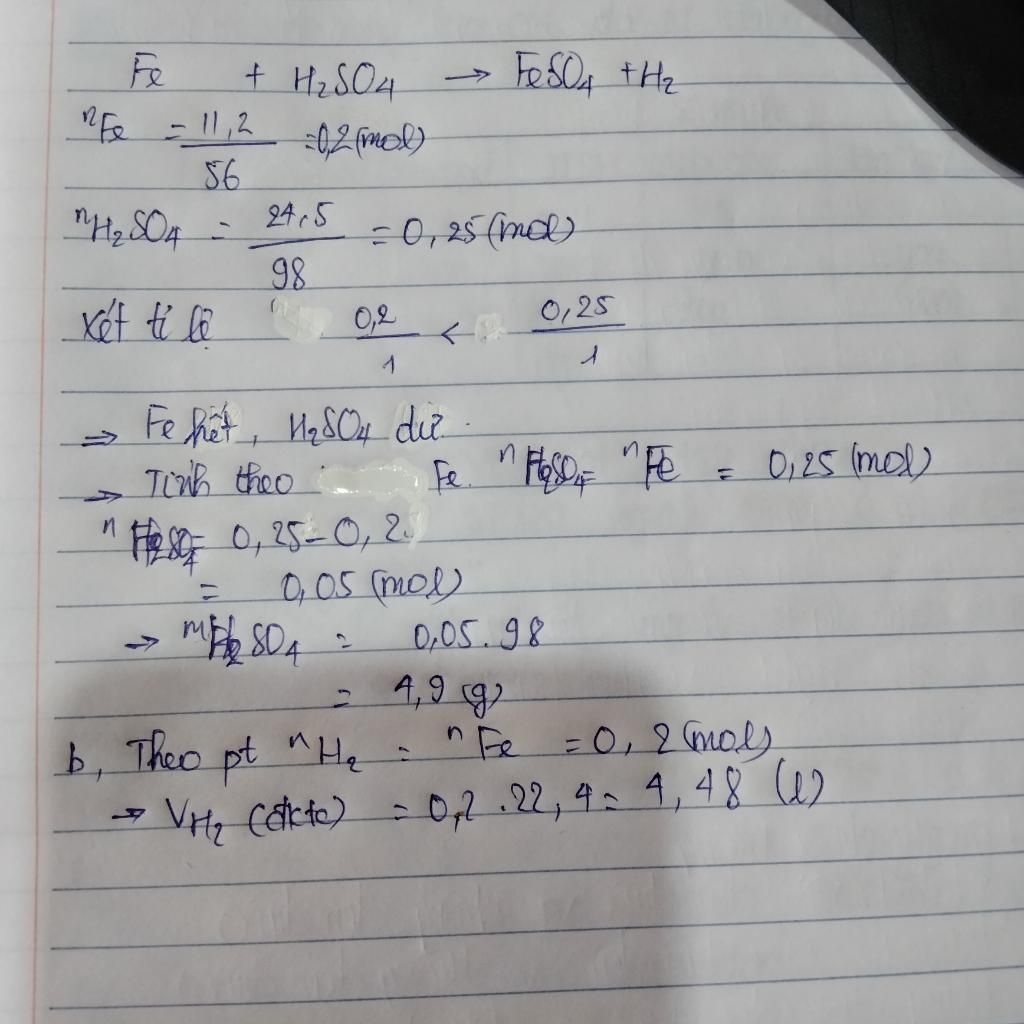 Fe + H₂SO₄ → FeSO₄ + H₂
nFe = 11,2/56 = 0,2 (mol)
nH₂SO₄ = 24,5/98 = 0,25 (mol)
Xét tỉ lệ 0,2/1 < 0,25/1
⇒ Fe hết, H₂SO₄ dư.
→ Tính theo Fe. nH₂SO₄ = nFe = 0,25 (mol)
nH₂SO₄ = 0,25 - 0,2
= 0,05 (mol)
→ mH₂SO₄ = 0,05.98
= 4,9 (g)
b, Theo pt nH₂ = nFe = 0,2 (mol)
→ VH₂ (đktc) = 0,2.22,4 = 4,48 (l)